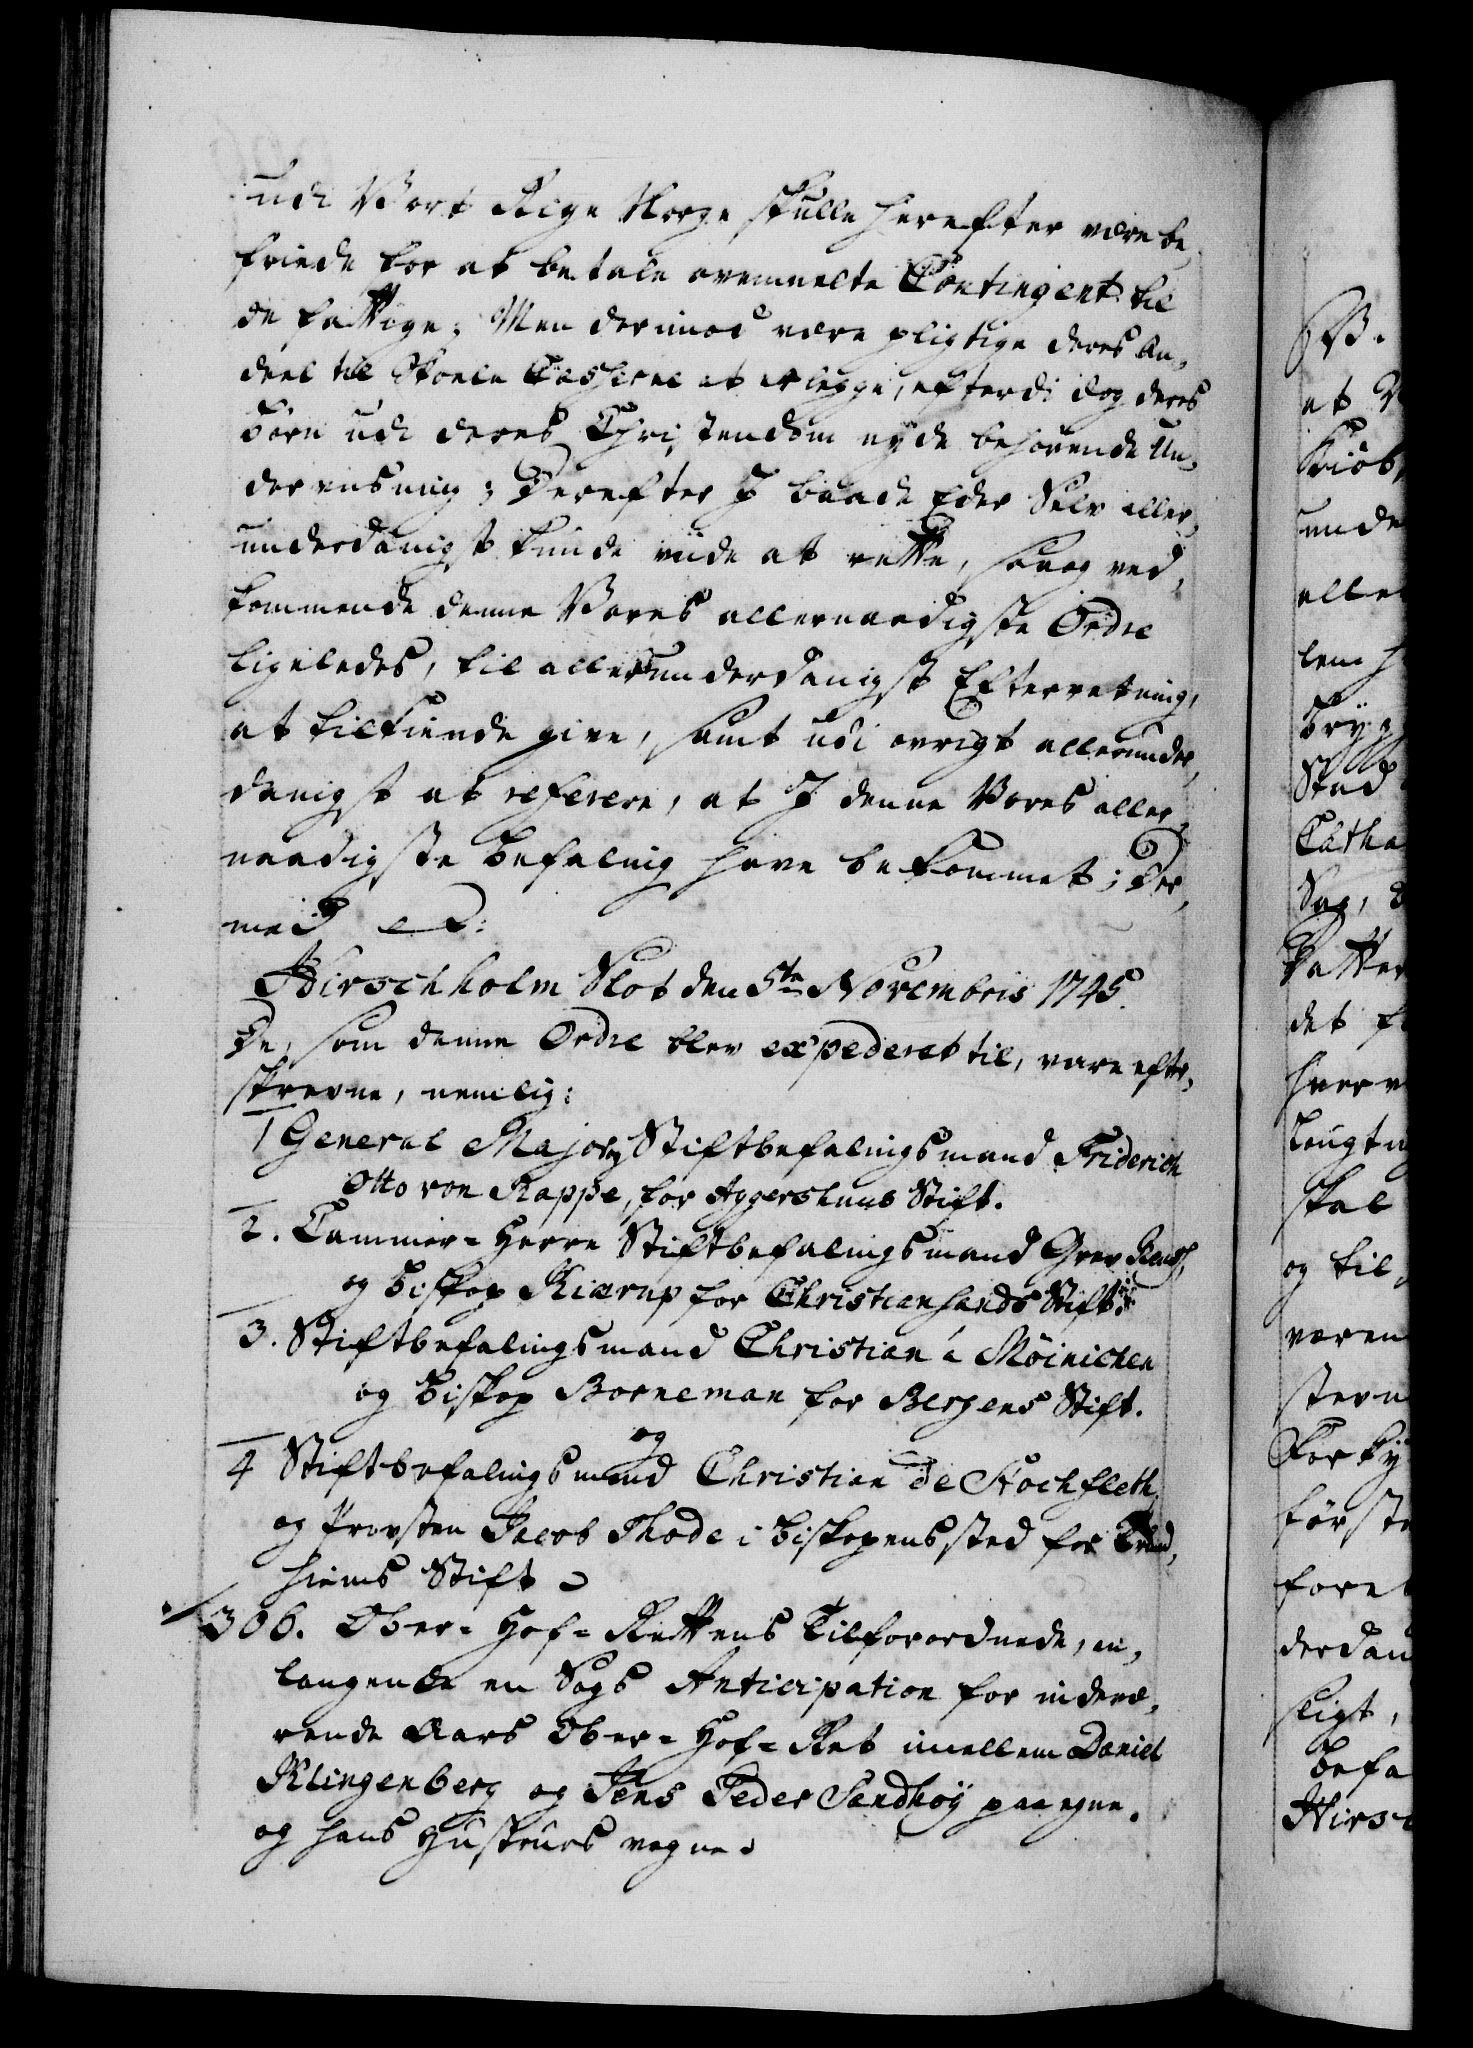 udi Vort Rige Norge skulle herefter være be¬
friede for at betale ovenmelte Contingent til
de fattige; Men derimod være pligtige deres An¬
deel til Skoele Casserne at erlegge, efterdi dog deres
Børn udi deres Christendom nyde behørende Un¬
derviisning; Derefter I baade Eder Selv aller¬
underdanigst kunde viide at rette, saa og ved¬
kommende denne Vores allernaadigste Ordre
ligeledes, til allerunderdanigst Efterretning,
at tilkiende give, samt udi øvrigt allerunder¬
danigst at referere, at I denne Vores aller¬
naadigste Befaling have bekommet; Der¬
med etc:
Hirschholm Slot den 5te Novembris 1745.
De, som denne Ordre blev expederet til, vare efter¬
skrevne, nemlig:
1 General Major og Stiftbefalingsmand Friderich
Otto von Rappe, for Aggershuus Stift.
2. Cammer-Herre Stiftbefalingsmand Grev Rantz,
og Biskop Kiærup for Christiansands Stift.
3. Stiftbefalingsmand Christian á Møinichen
og Biskop Borneman for Bergens Stift.
4 Stiftbefalingsmand og Christian de Stochfleth,
og Provsten Jacob Thode i Biskopens sted for Trund¬
hiems Stift
306. Ober-Hof-Rettens Tilforordnede, an¬
langende en Sags Anticipation for indevæ¬
rende Aars Ober-Hof-Ret imellem Daniel
Klingenberg og Jens Peder Sandhøy paa egne
og hans Hustrues vegne.
at
Kiøb
unde
aller
lem
Stad
Catha
Sag,
det
skal
og til
første
derdan
sligt,
Befa
Hirsc